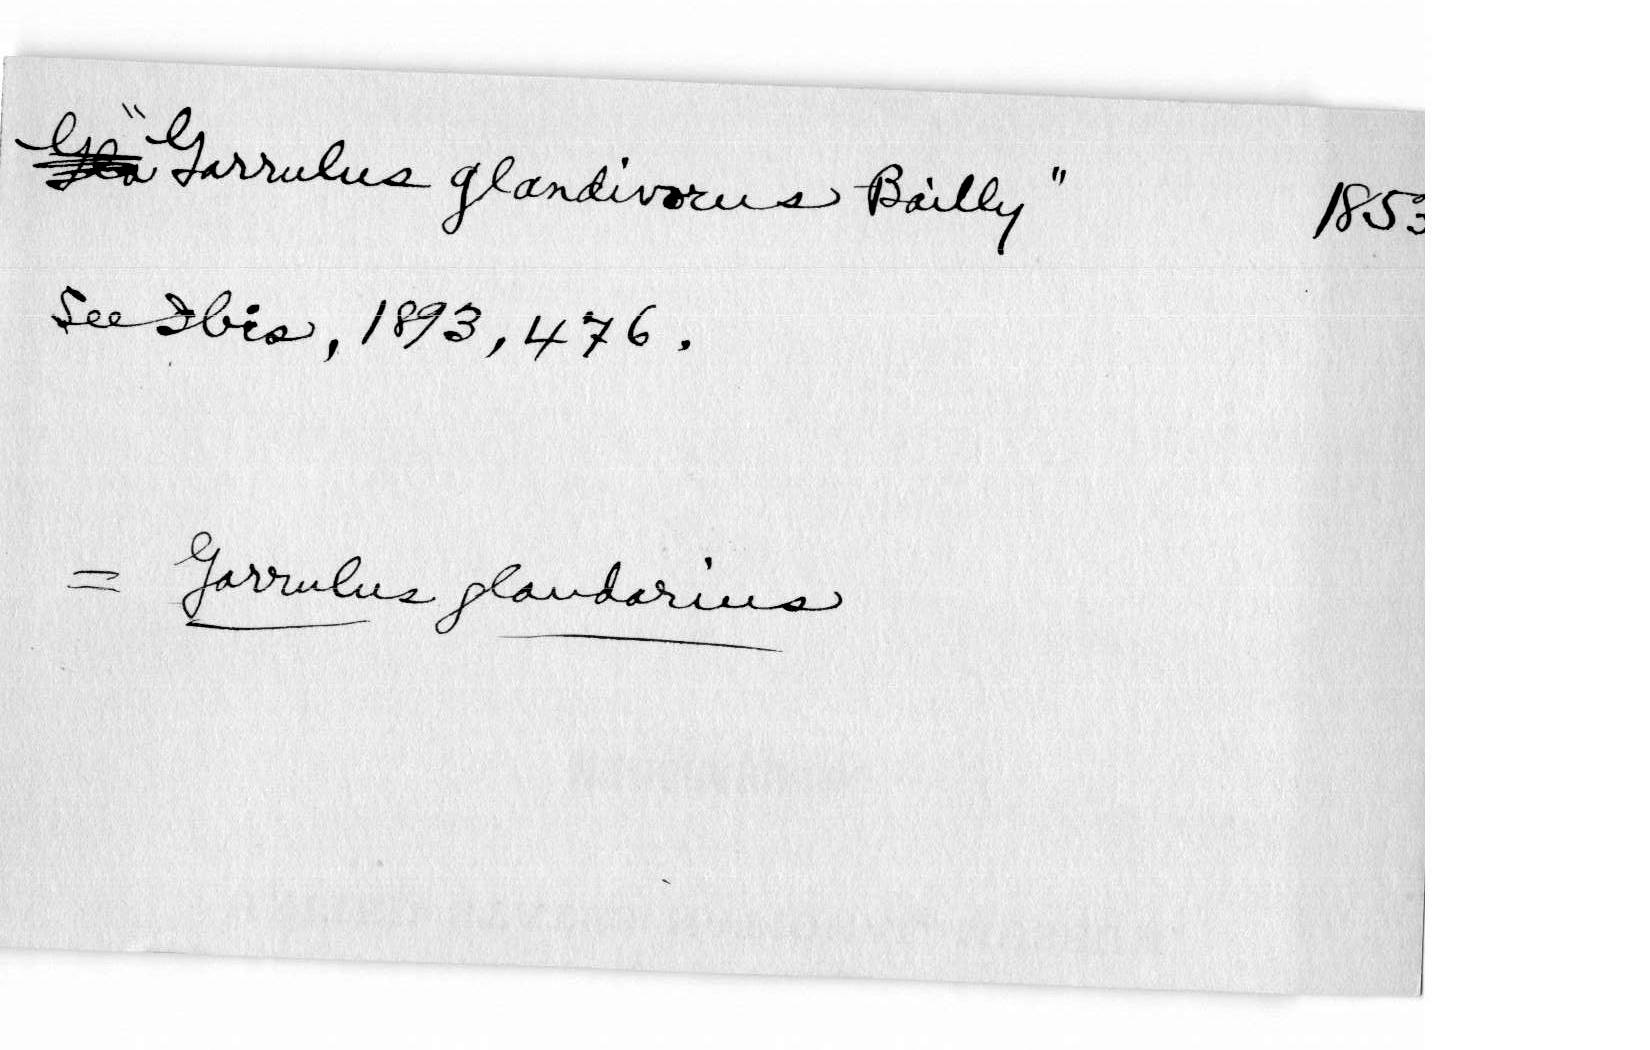 "Garrulus glandivorus Bailly" 1853
See Ibis, 1893, 476.
= Garrulus glandarius